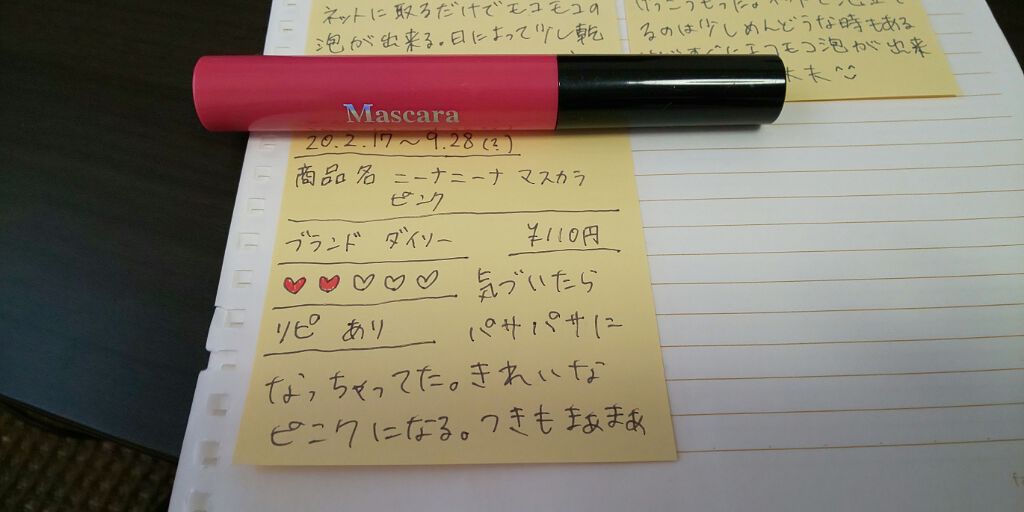 ネットに取るだけでモコモコの
泡が出来る。日によって少し乾
るのは少しめんどうな時もある
モコ泡が出来
Mascara
20.2.17〜9.28(?)
商品名 ニーナニーナ マスカラ
ピンク
ブランド ダイソー ¥110円
♥♥♡♡♡ 気づいたら
リピ あり パサパサに
なっちゃってた。きれいな
ピンクになる。つきもまぁまぁ